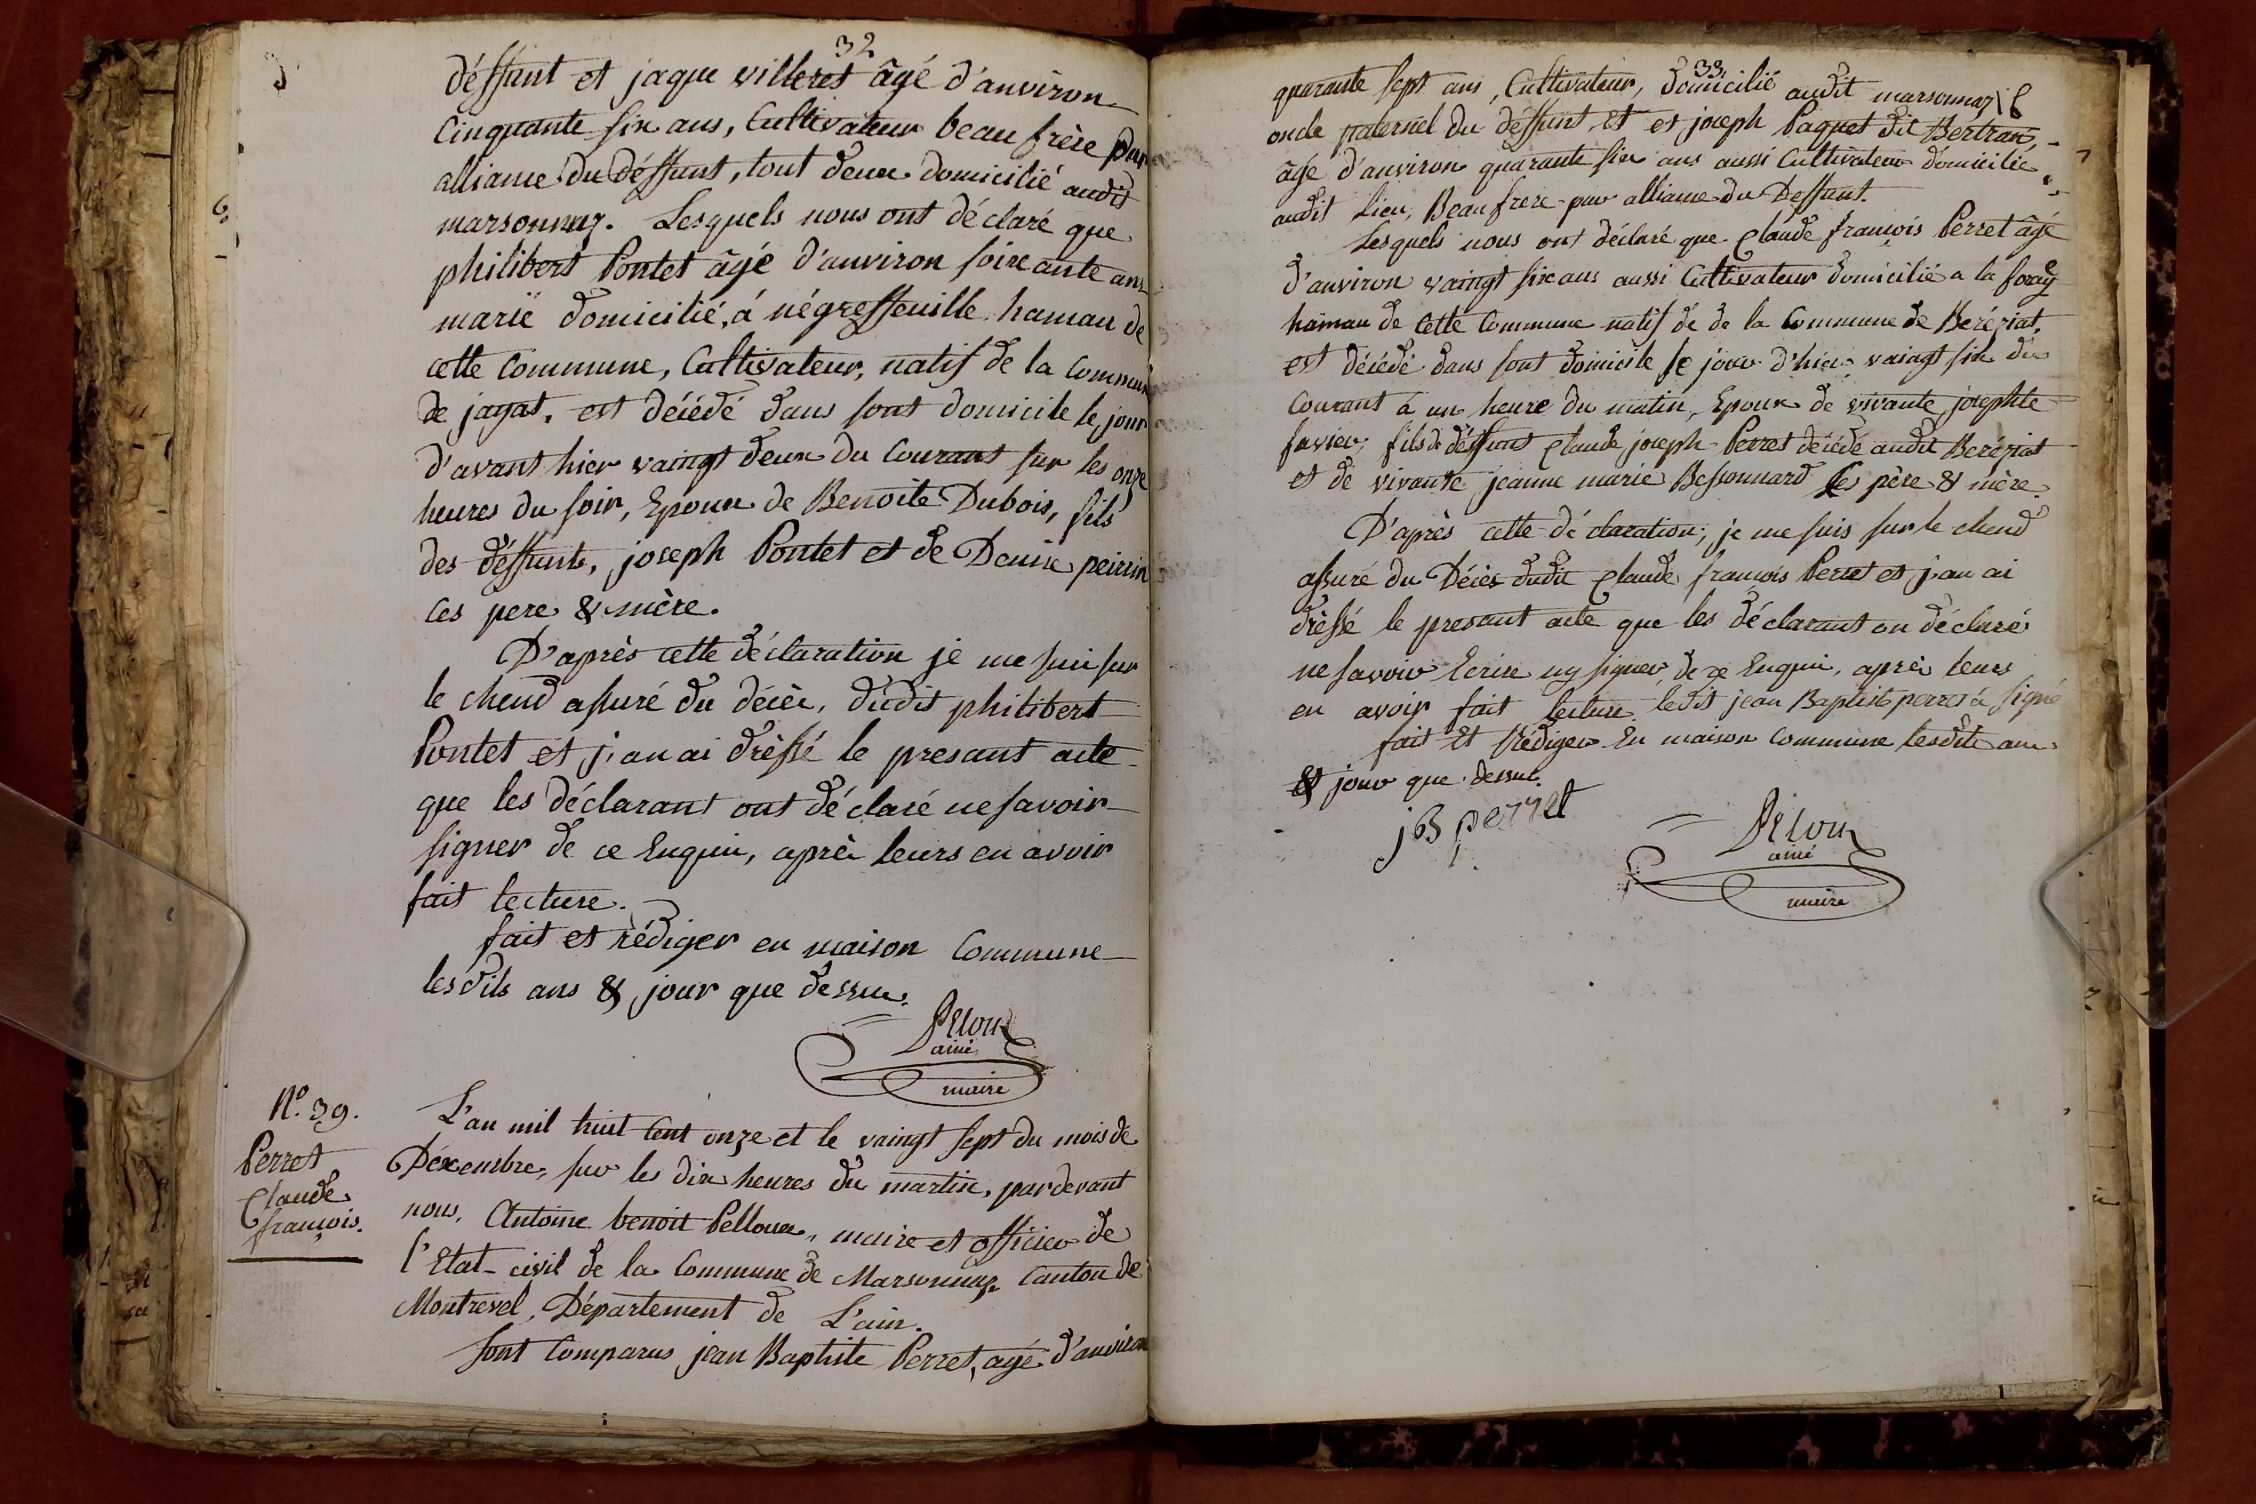 32
déffunt et jaque villeret âgé d'anviron
Cinquante six ans, Cultivateur beau frère par
alliance du déffunt, tout deux domicilié audit
marsonnaz. Lesquels nous ont déclaré que
philibert Pontet âgé d'anviron soixante ans
marié domicilié, á négreffeuille hamau de
cette Commune, Cultivateur, natif de la Commune
de jayat, est décédé dans sont domicile le jour
d'avant hier vaingt deux du Courant sur les onze
heures du soir, Epoux de Benoite Dubois, fils
des déffunts, joseph Pontet et de Denise peirrin
Ces pere & mère.
D'après cette déclaration je me suis sur
le chend assuré du décèr, dudit philibert
Pontet et j'an ai drèssé le presant acte
que les déclarant ont déclaré ne savoir
signer de ce Enquis, aprèr leurs en avoir
fait lecture.
fait et rédiger en maison Commune
les dits ans & jour que dessus.
Peloux
ainé
maire
N.º 39.
Perret
Claude
françois.
L'an mil huit Cent onze et le vaingt sept du mois de
Dexembre, sur les dix heures du martin, pardevant
nous, Antoine benoit Pelloux, maire et officier de
l'Etat-civil de la Commune de Marsonnaz Canton de
Montrevel, Département de L'ain.
Sont Comparus jean Baptiste Perret, agé d'anviron
33.
quarante sept ans, Cultivateur, domicilié audit marsonnaz
oncle paternel du déffunt, et et joseph Paquet dit Bertran,
âgé d'anviron quarante six ans aussi Cultivateur domicilié
audit Lieu, Beau frere par alliance du Deffunt.
Lesquels nous ont déclaré que Claude françois Perret âgé
d'anviron vaingt six ans aussi Cultivateur domicilié a la foray
hamau de Cette Commune natif de de la Commune de Beréziat,
est décédé dans sont domicile le jour d'hier vaingt six du
Courant á un heure du matin, Epoux de vivante josephte
favier, fils de déffunt Claude joseph Perret décédé audit Beréziat
et de vivante jeanne marie Bessonnard Ces père & mère.
D'après cette déclaration, je me suis sur le chend
assuré du Décès dudit Claude françois Perret et j'an ai
drèssé le presant acte que les déclarant on déclaré
ne savoir Ecrire ny signer, de ce Enquis, aprèr leurs
en avoir fait lecture ledit jean Baptiste perret à signé
fait Et Rédiger En maison Commune lesdits ans
& jour que dessus.
jB perret
Peloux
ainé
maire